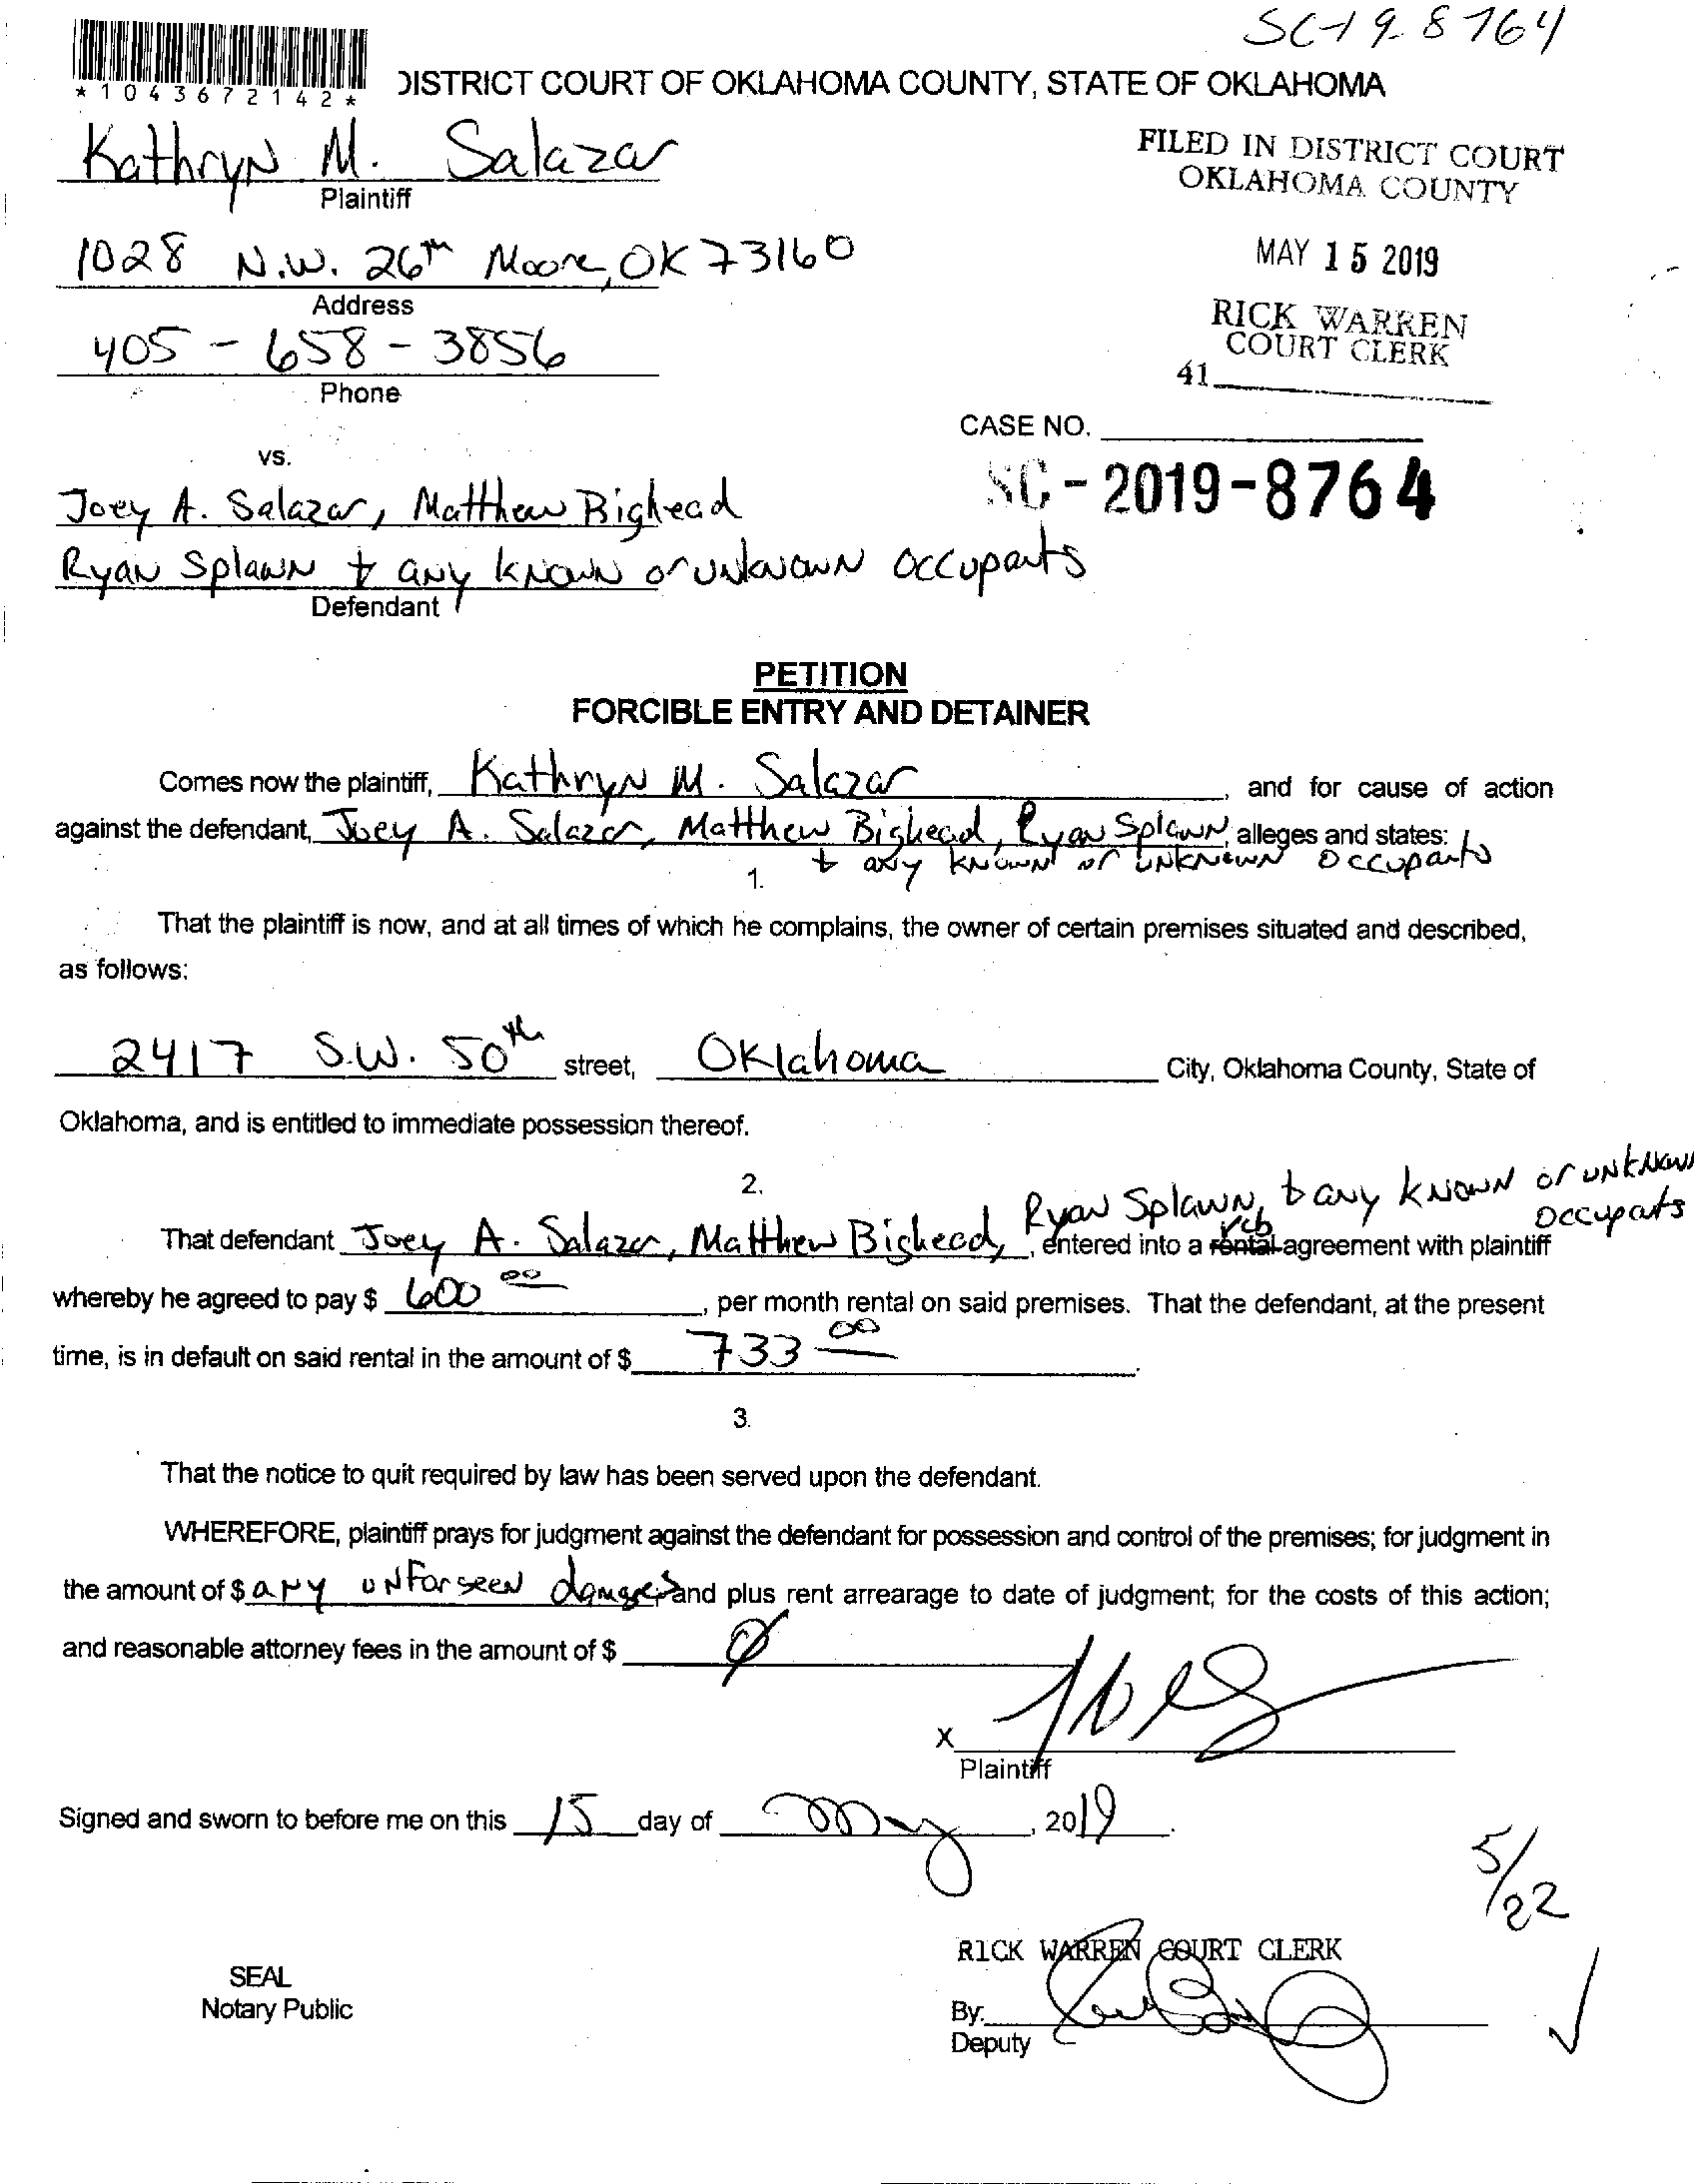 SC-19-8764
*1043672142*
DISTRICT COURT OF OKLAHOMA COUNTY, STATE OF OKLAHOMA
Kathryn M. Salazar
Plaintiff
FILED IN DISTRICT COURT
OKLAHOMA COUNTY
1028 N.W. 26th Moore, OK 73160
Address
MAY 15 2019
405-658-3856
Phone
RICK WARREN
COURT CLERK
41
CASE NO.
SC-2019-8764
vs.
Joey A. Salazar, Matthew Bighead
Ryan Splawn + any known or unknown occupants
Defendant
PETITION
FORCIBLE ENTRY AND DETAINER
Comes now the plaintiff, Kathryn M. Salazar, and for cause of action
against the defendant, Joey A. Salazar, Matthew Bighead, Ryan Splawn, alleges and states:
+ any known or unknown occupants
1.
That the plaintiff is now, and at all times of which he complains, the owner of certain premises situated and described,
as follows:
2417 S.W. 50th street, Oklahoma City, Oklahoma County, State of
Oklahoma, and is entitled to immediate possession thereof.
2.
Ryan Splawn, + any known or unknown
occupants
That defendant Joey A. Salazar, Matthew Bighead, entered into a rental agreement with plaintiff
whereby he agreed to pay $ 600 00, per month rental on said premises. That the defendant, at the present
time, is in default on said rental in the amount of $ 733 00.
3.
That the notice to quit required by law has been served upon the defendant.
WHEREFORE, plaintiff prays for judgment against the defendant for possession and control of the premises; for judgment in
the amount of $ any unforseen damages and plus rent arrearage to date of judgment; for the costs of this action;
and reasonable attorney fees in the amount of $ Ø
X
Plaintiff
Signed and sworn to before me on this 15 day of May, 2019.
5/22
RICK WARREN COURT CLERK
SEAL
Notary Public
By:
Deputy